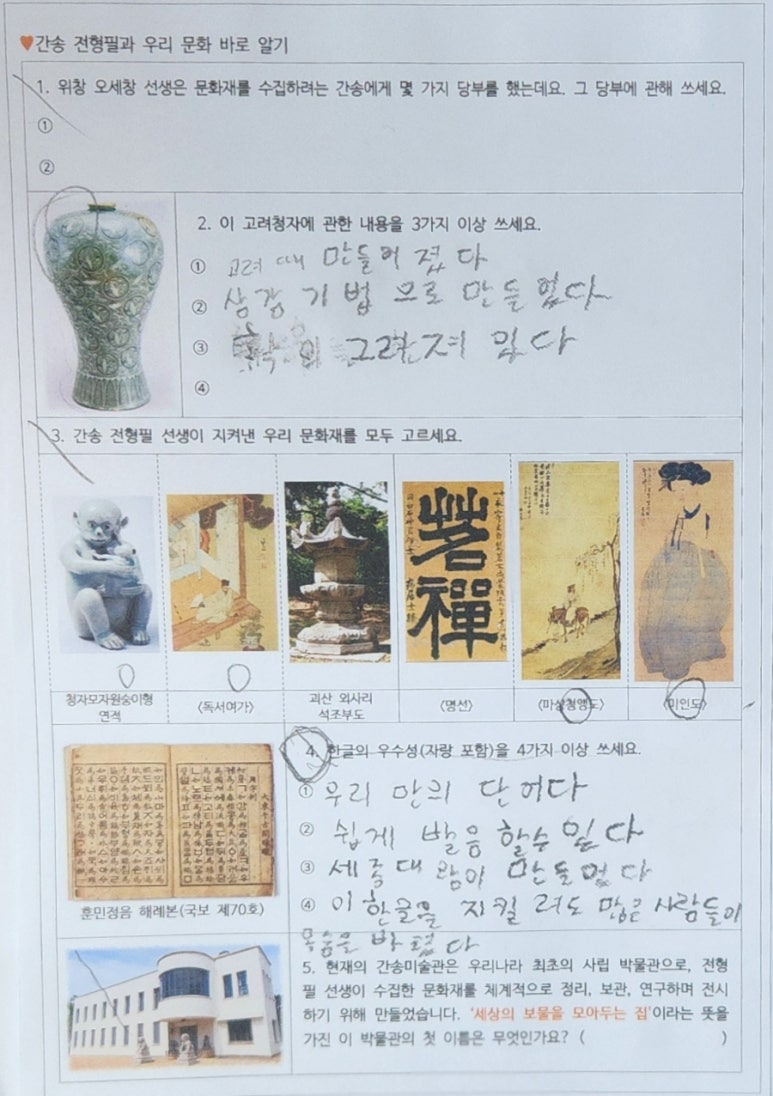 ♥간송 전형필과 우리 문화 바로 알기
1. 위창 오세창 선생은 문화재를 수집하려는 간송에게 몇 가지 당부를 했는데요. 그 당부에 관해 쓰세요.
①
②
2. 이 고려청자에 관한 내용을 3가지 이상 쓰세요.
① 고려 때 만들어 졌다
② 상감 기법 으로 만들었다
③ 학이 그려져 있다
④
3. 간송 전형필 선생이 지켜낸 우리 문화재를 모두 고르세요.
청자모자원숭이형
연적
<독서여가>
괴산 외사리
석조부도
<명선>
<마상청앵도>
<미인도>
4. 한글의 우수성(자랑 포함)을 4가지 이상 쓰세요.
① 우리 만의 단어다
② 쉽게 발음 할수 있다
③ 세종대왕이 만들었다
④ 이 한글을 지킬려도 많은 사람들이
목숨을 바쳤다
훈민정음 해례본(국보 제70호)
5. 현재의 간송미술관은 우리나라 최초의 사립 박물관으로, 전형
필 선생이 수집한 문화재를 체계적으로 정리, 보관, 연구하며 전시
하기 위해 만들었습니다. '세상의 보물을 모아두는 집'이라는 뜻을
가진 이 박물관의 첫 이름은 무엇인가요? ( )